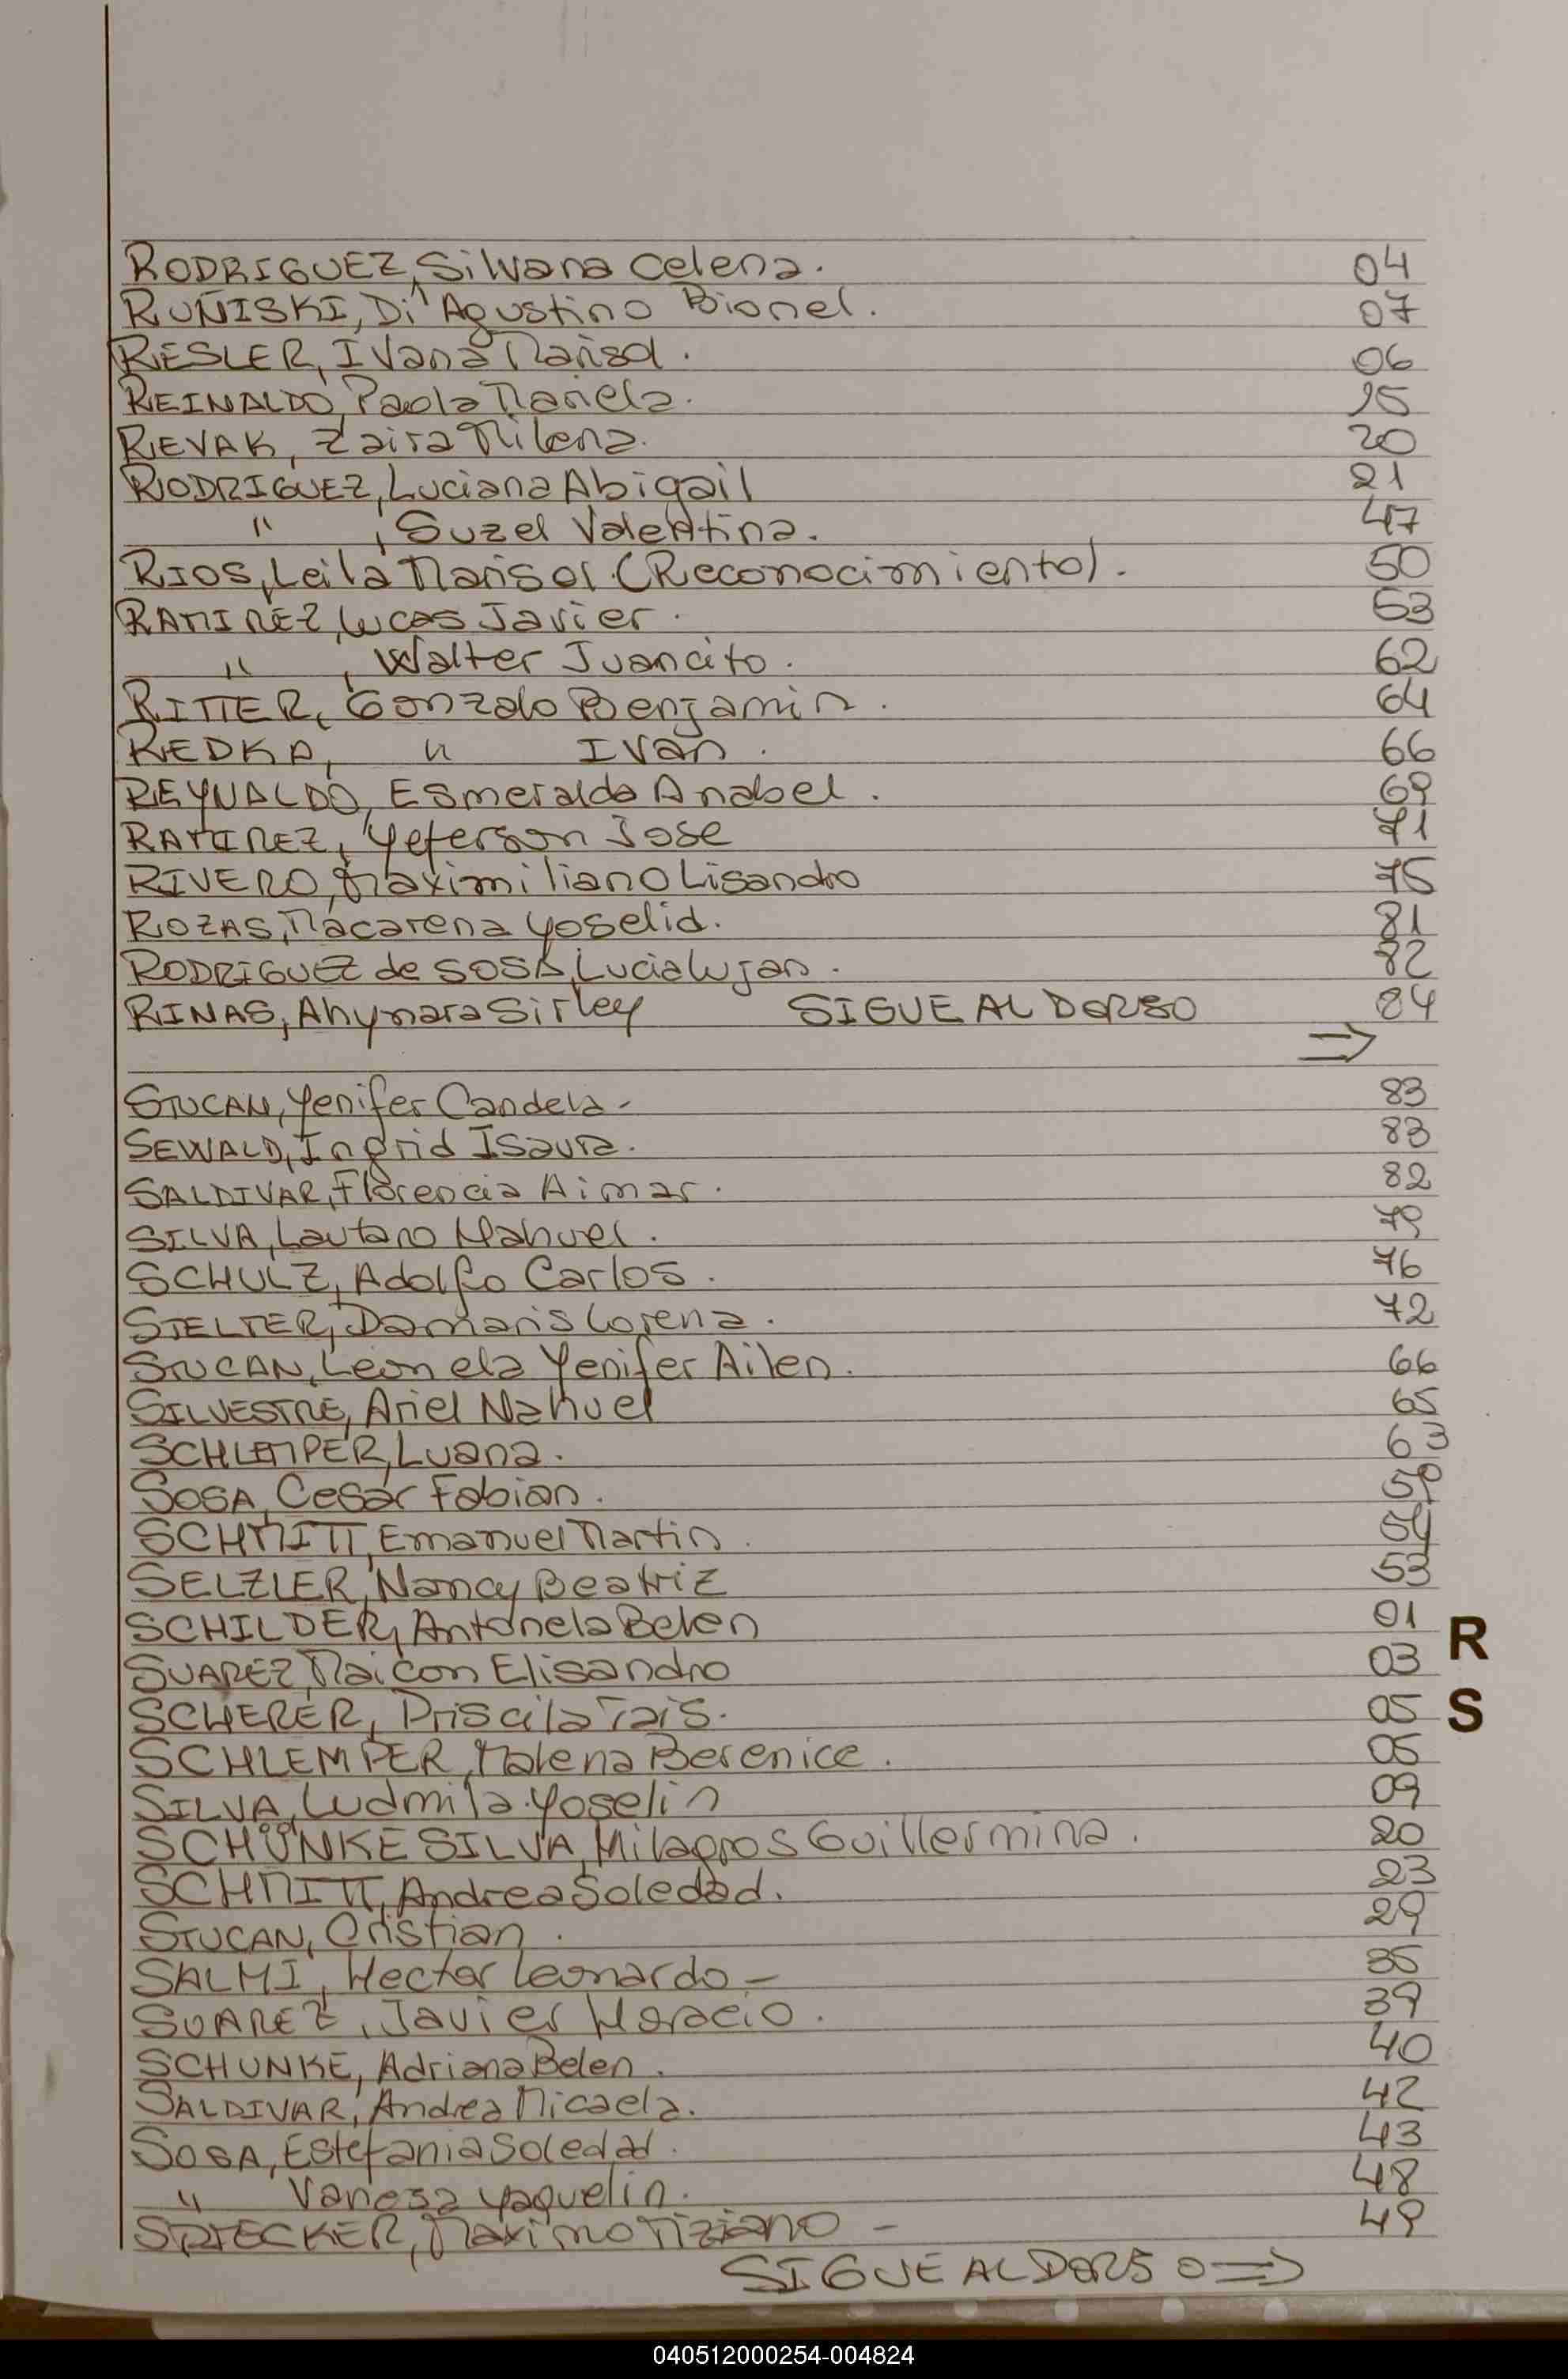 RODRIGUEZ, Silvana Celena. 04
RUÑISKI, Di Agustino Bionel. 07
RESLER, Ivana Marisol. 06
REINALDO, Paola Mariela. 15
REVAK, Zaira Milena. 20
RODRIGUEZ, Luciana Abigail 21
" , Suzel Valentina. 47
RIOS, Leila Marisol (Reconocimiento). 50
RAMIREZ, Lucas Javier. 53
" , Walter Juancito. 62
RITTER, Gonzalo Benjamin. 64
REDKA, " Ivan. 66
REYNALDO, Esmeralda Anabel. 69
RAMIREZ, Yeferson Jose 71
RIVERO, Maximiliano Lisandro 75
ROZAS, Macarena Yoselid. 81
RODRIGUEZ de SOSA, Lucia Lujan. 82
RINAS, Ahynara Sirley SIGUE AL DORSO 84
⇒
STUCAN, Yenifer Candela- 83
SEWALD, Ingrid Isaura. 83
SALDIVAR, Florencia Aimar. 82
SILVA, Lautaro Nahuel. 79
SCHULZ, Adolfo Carlos. 76
STELTER, Damaris Lorena. 72
STUCAN, Leonela Yenifer Ailen. 66
SILVESTRE, Ariel Nahuel 65
SCHLEMPER, Luana. 63
SOSA, Cesar Fabian. 59
SCHMITT, Emanuel Martin. 54
SELZLER, Nancy Beatriz 53
SCHILDER, Antonela Belen 01
R
SUAREZ, Maicon Elisandro 03
SCHERER, Priscila Tais. 05
S
SCHLEMPER, Malena Berenice. 05
SILVA, Ludmila Yoselin 09
SCHÜNKE SILVA, Milagros Guillermina. 20
SCHMITT, Andrea Soledad. 23
STUCAN, Cristian. 29
SALMI, Hector Leonardo - 35
SUAREZ, Javier Horacio. 39
SCHUNKE, Adriana Belen. 40
SALDIVAR, Andrea Micaela. 42
SOSA, Estefania Soledad. 43
" Vanesa Yaquelin. 48
SPRECKER, Maximo Tiziano - 49
SIGUE AL DORSO ⇒
040512000254-004824